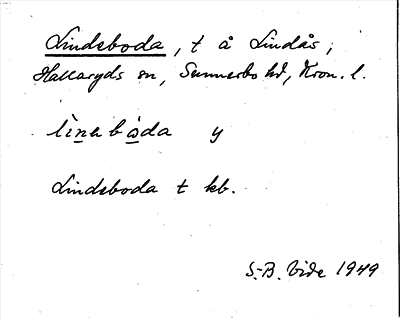 Lindsboda, t å Lindås,
Hallaryds sn, Sunnerbo hd, Kron. l.
lìnabòda y
Lindsboda t kb.
S.-B. Vide 1949